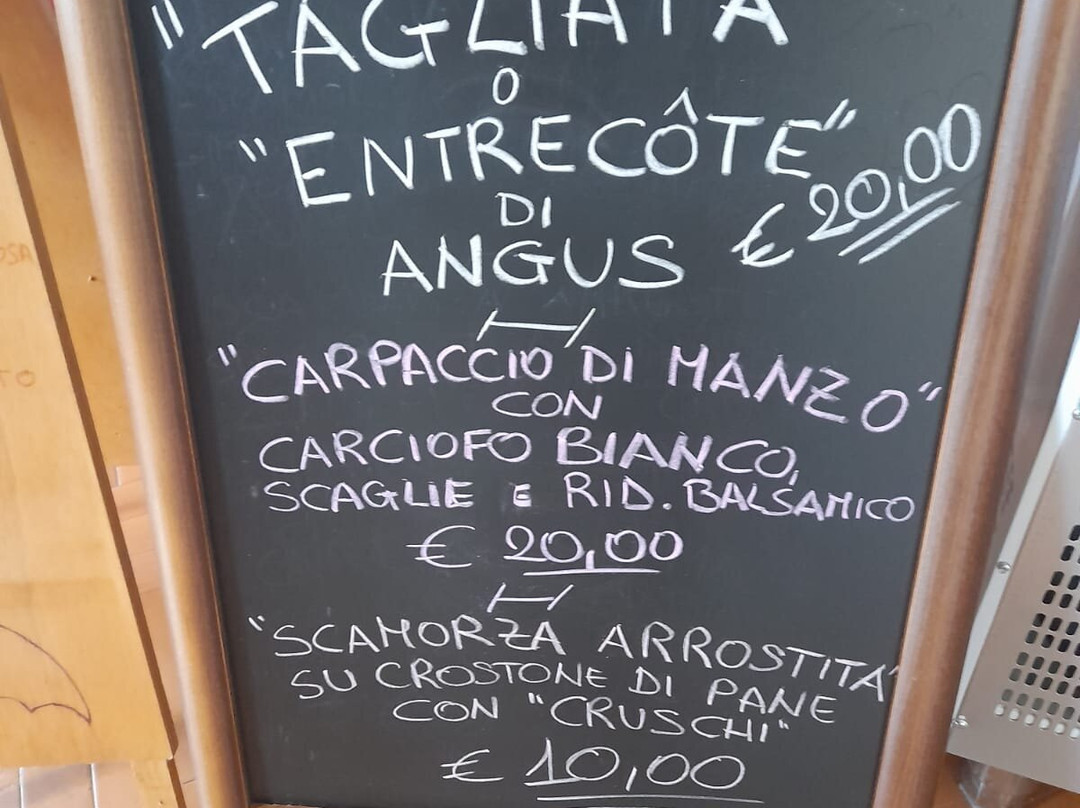 "TAGLIATA
O
"ENTRECÔTE"
DI
ANGUS € 20,00
"CARPACCIO DI MANZO"
CON
CARCIOFO BIANCO,
SCAGLIE E RID. BALSAMICO
€ 20,00
"SCAMORZA ARROSTITA"
SU CROSTONE DI PANE
CON "CRUSCHI"
€ 10,00